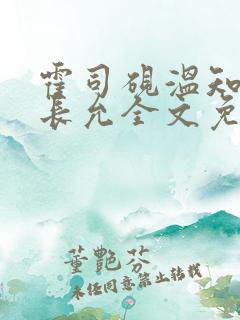 霍司砚温知
长允全文免
董艷芬
未经同意禁止转载